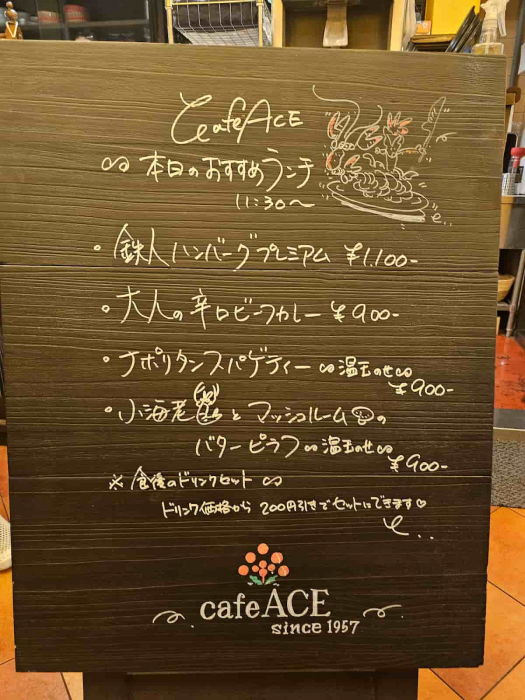 CafeACE
∞ 本日のおすすめランチ
11:30〜
・鉄人ハンバーグプレミアム ¥1,100-
・大人の辛口ビーフカレー ¥900-
・ナポリタンスパゲティー ∞温玉のせ∞
¥900-
・小海老とマッシュルームの
バターピラフ ∞温玉のせ∞
¥900-
※食後のドリンクセット ∞
ドリンク価格から200円引きでセットにできます♡
cafeACE
since 1957